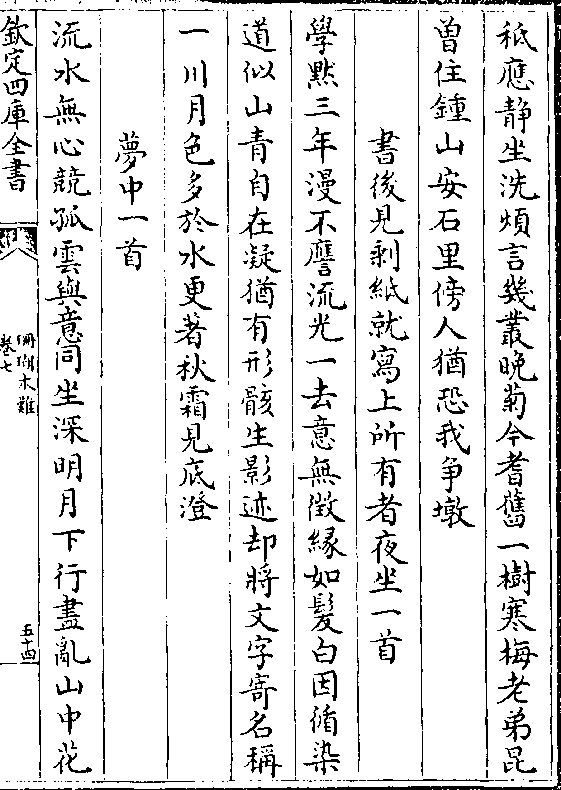 秪應静坐洗煩言幾叢晚菊今耆舊一樹寒梅老弟昆
曽住鍾山安石里傍人猶恐我争墩
書後見剩紙就寫上所有者夜坐一首
學㸃三年漫不譍流光一去意無徴縁如髪白因循染
道似山青自在凝猶有形骸生影迹却將文字寄名稱
一川月色多於水更著秋霜見底澄
夢中一首
流水無心競孤雲與意同坐深明月下行盡亂山中花
欽定四庫全書
珊瑚木難
卷七
五十四